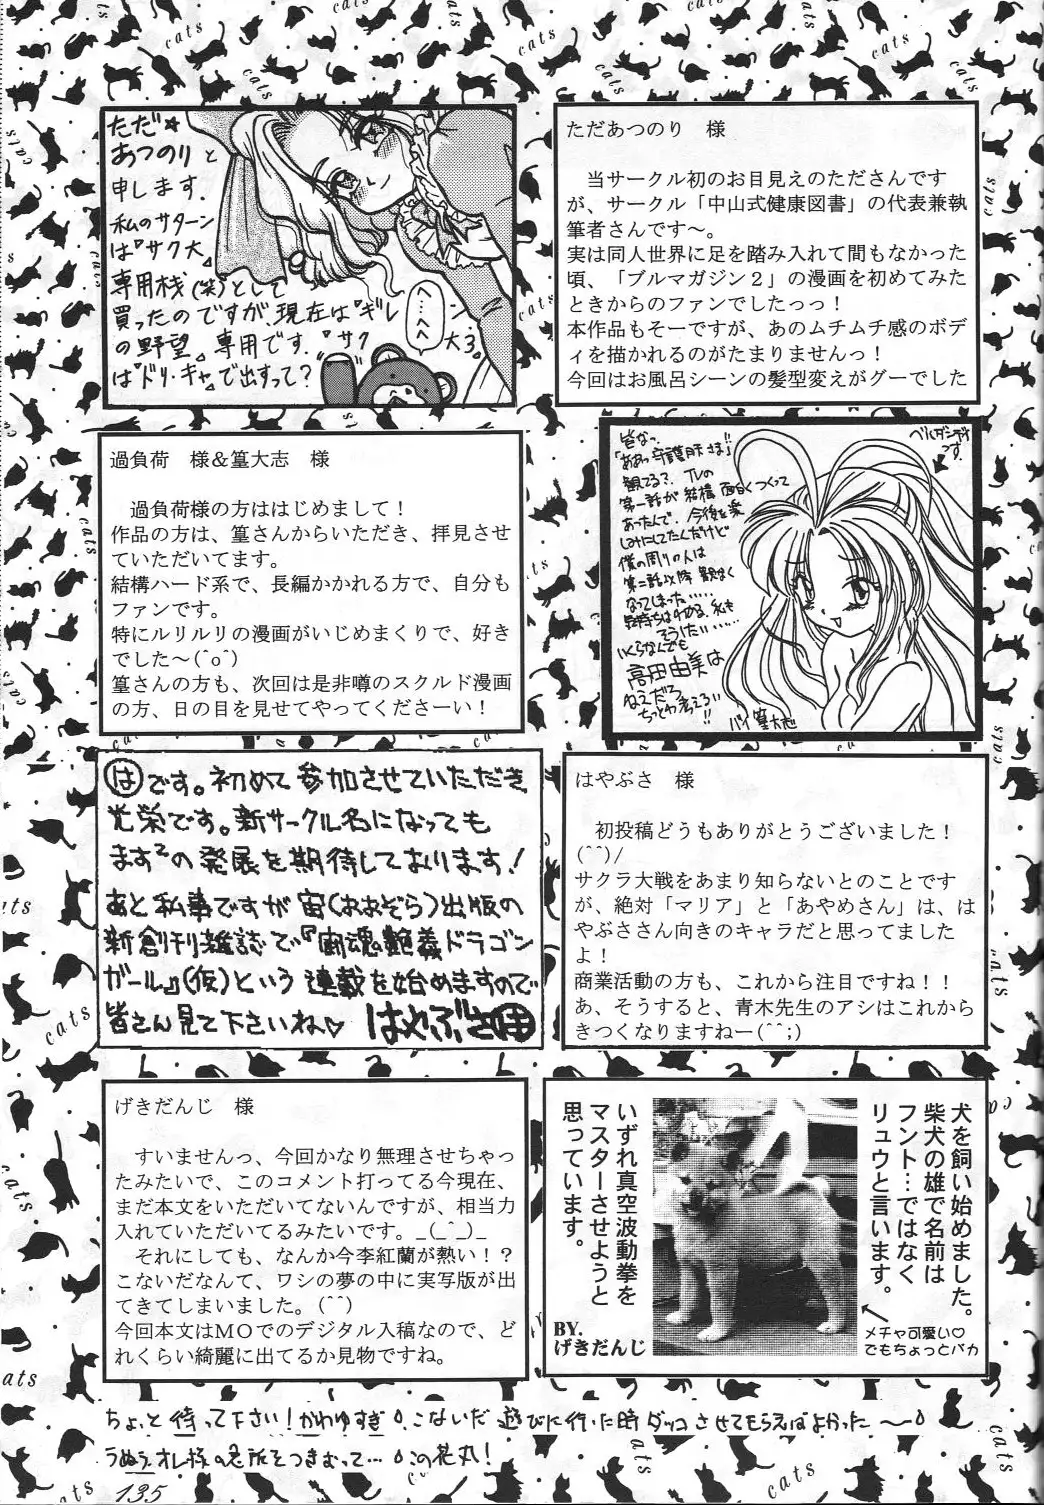 ただ★
あつのりと
申します。
私のサターン
は『サク大』
専用桟(笑)として
買ったのですが、現在は『ギレン
の野望』専用です。『サク大3』
は『ドリ・キャ』で出すって?
へ…へへ
ただあつのり　様
当サークル初のお目見えのたださんです
が、サークル「中山式健康図書」の代表兼執
筆者さんです〜。
実は同人世界に足を踏み入れて間もなかった
頃、「ブルマガジン２」の漫画を初めてみた
ときからのファンでしたっっ！
本作品もそーですが、あのムチムチ感のボデ
ィを描かれるのがたまりませんっ！
今回はお風呂シーンの髪型変えがグーでした
過負荷　様＆篁大志　様
過負荷様の方ははじめまして！
作品の方は、篁さんからいただき、拝見させ
ていただいてます。
結構ハード系で、長編かかれる方で、自分も
ファンです。
特にルリルリの漫画がいじめまくりで、好き
でした〜(^o^)
篁さんの方も、次回は是非噂のスクルド漫画
の方、日の目を見せてやってくださーい！
皆なっ
「ああっ守護月天さま!!」
観てる?. TVの
第一話が結構面白くつくって
あったんで、今後を楽
しみにしてたんだけど
僕の周りの人は
第二話以降 観なく
なってしまった……
気持ちはわかる、私も
そうしたい……
いくらなんでも
高田由美は
ねえだろ
ちっとわ考えろい
!!
ベルダンディ
っす。
バイ 篁大志
はです。初めて参加させていただき
光栄です。新サークル名になっても
ます²の発展を期待しております!
あと私事ですが宙(おおぞら)出版の
新創刊雑誌で『宙魂艶義ドラゴン
ガール』(仮)という連載を始めますので
皆さん見て下さいね♡ はやぶさ
はやぶさ　様
初投稿どうもありがとうございました！
(^^)/
サクラ大戦をあまり知らないとのことです
が、絶対「マリア」と「あやめさん」は、は
やぶささん向きのキャラだと思ってました
よ！
商業活動の方も、これから注目ですね！！
あ、そうすると、青木先生のアシはこれから
きつくなりますねー(^^;)
げきだんじ　様
すいませんっ、今回かなり無理させちゃっ
たみたいで、このコメント打ってる今現在、
まだ本文をいただいてないんですが、相当力
入れていただいてるみたいです。_(_^_)_
それにしても、なんか今李紅蘭が熱い！？
こないだなんて、ワシの夢の中に実写版が出
てきてしまいました。(^^)
今回本文はＭＯでのデジタル入稿なので、ど
れくらい綺麗に出てるか見物ですね。
犬を飼い始めました。
柴犬の雄で名前は
フント…ではなく
リュウと言います。
メチャ可愛い♡
でもちょっとバカ
いずれ真空波動拳を
マスターさせようと
思っています。
BY.
げきだんじ
ちょっと待って下さい!かわゆすぎ。こないだ遊びに行った時ダッコさせてもらえばよかった〜。
135